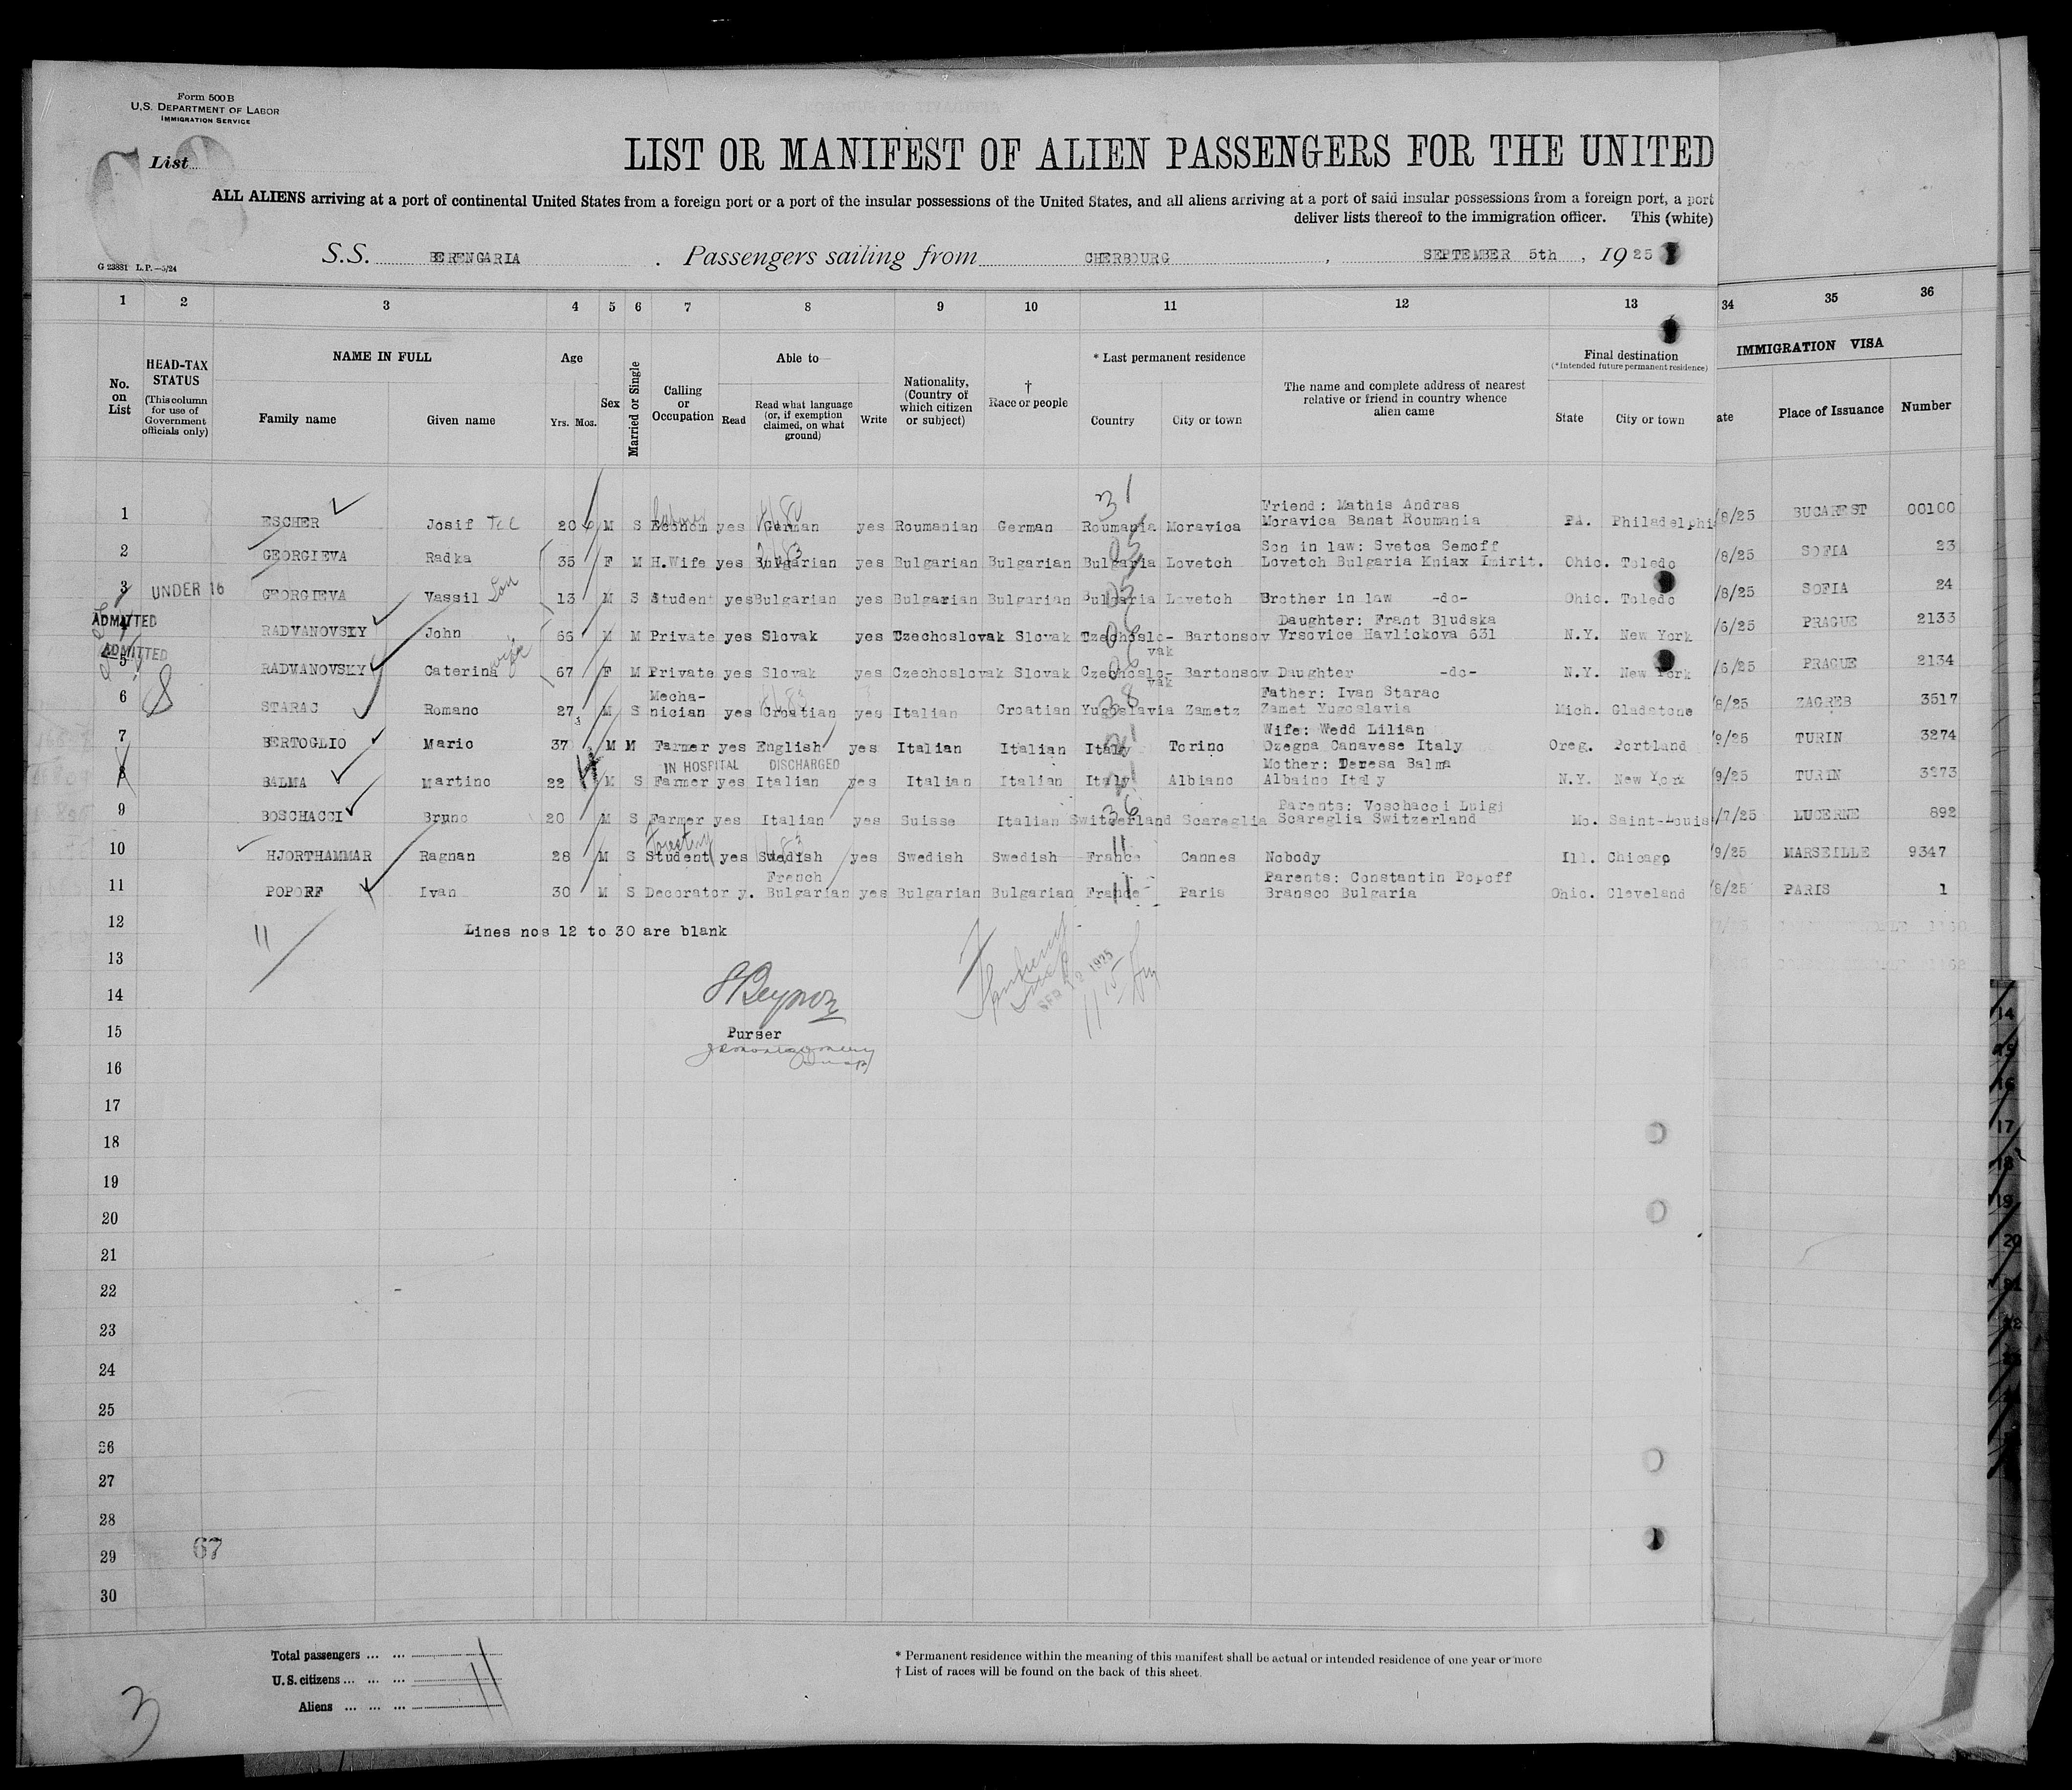 Form 500 B
U.S. DEPARTMENT OF LABOR
IMMIGRATION SERVICE
List
LIST OR MANIFEST OF ALIEN PASSENGERS FOR THE UNITED
ALL ALIENS arriving at a port of continental United States from a foreign port or a port of the insular possessions of the United States, and all aliens arriving at a port of said insular possessions from a foreign port, a port
deliver lists thereof to the immigration officer. This (white)
S.S. BERENGARIA . Passengers sailing from CHERBOURG , SEPTEMBER 5th , 1925
G 23831 L.P.—5/24
1 2 3 4 5 6 7 8 9 10 11 12 13 34 35 36
No. on List
HEAD-TAX STATUS
(This column for use of Government officials only)
NAME IN FULL
Family name Given name
Age
Yrs. Mos.
Sex
Married or Single
Calling or Occupation
Able to
Read
Read what language (or, if exemption claimed, on what ground)
Write
Nationality, (Country of which citizen or subject)
† Race or people
* Last permanent residence
Country City or town
The name and complete address of nearest relative or friend in country whence alien came
Final destination
(*Intended future permanent residence)
State City or town
IMMIGRATION VISA
ate Place of Issuance Number
Friend: Mathis Andras
1 ESCHER Josif 20 M S Econom yes German yes Roumanian German Roumania Moravica Moravica Banat Roumania PA. Philadelphi /8/25 BUCAREST 00100
Son in law: Svetca Semoff
2 GEORGIEVA Radka 35 F M H.Wife yes Bulgarian yes Bulgarian Bulgarian Bulgaria Lovetch Lovetch Bulgaria Kniax Imirit. Ohio. Toledo /8/25 SOFIA 23
3 UNDER 16 GEORGIEVA Vassil Son 13 M S Student yes Bulgarian yes Bulgarian Bulgarian Bulgaria Lovetch Brother in law -do- Ohio. Toledo /8/25 SOFIA 24
ADMITTED
Daughter: Frant Bludska
4 RADVANOVSKY John 66 M M Private yes Slovak yes Tzechoslovak Slovak Tzechoslo-vak Bartonsov Vrsovice Havlickova 631 N.Y. New York /6/25 PRAGUE 2133
ADMITTED
5 RADVANOVSKY Caterina wife 67 F M Private yes Slovak yes Czechoslovak Slovak Czechoslo-vak Bartonsov Daughter -do- N.Y. New York /6/25 PRAGUE 2134
8
Father: Ivan Starac
6 STARAC Romano 27 M S Mecha-nician yes Croatian yes Italian Croatian Yugoslavia Zametz Zamet Yugoslavia Mich. Gladstone /8/25 ZAGREB 3517
Wife: Wedd Lilian
7 BERTOGLIO Mario 37 M M Farmer yes English yes Italian Italian Italy Torino Ozegna Canavese Italy Oreg. Portland /9/25 TURIN 3274
IN HOSPITAL DISCHARGED
Mother: Deresa Balma
8 BALMA Martino 22 M S Farmer yes Italian yes Italian Italian Italy Albiano Albaino Italy N.Y. New York /9/25 TURIN 3273
Parents: Voschacci Luigi
9 BOSCHACCI Bruno 20 M S Farmer yes Italian yes Suisse Italian Switzerland Scareglia Scareglia Switzerland Mo. Saint-Louis /7/25 LUCERNE 892
10 HJORTHAMMAR Ragnan 28 M S Student yes Swedish yes Swedish Swedish France Cannes Nobody Ill. Chicago /9/25 MARSEILLE 9347
French
Parents: Constantin Popoff
11 POPOFF Ivan 30 M S Decorator y. Bulgarian yes Bulgarian Bulgarian France Paris Bransco Bulgaria Ohio. Cleveland /8/25 PARIS 1
12
11
Lines nos 12 to 30 are blank
13
14
SEP 12 1925
15
Purser
16
17
18
19
20
21
22
23
24
25
26
27
28
29 67
30
Total passengers ... ...
U.S. citizens ... ... ... 11
Aliens ... ... ...
3
* Permanent residence within the meaning of this manifest shall be actual or intended residence of one year or more
† List of races will be found on the back of this sheet.
14
15
16
17
18
19
20